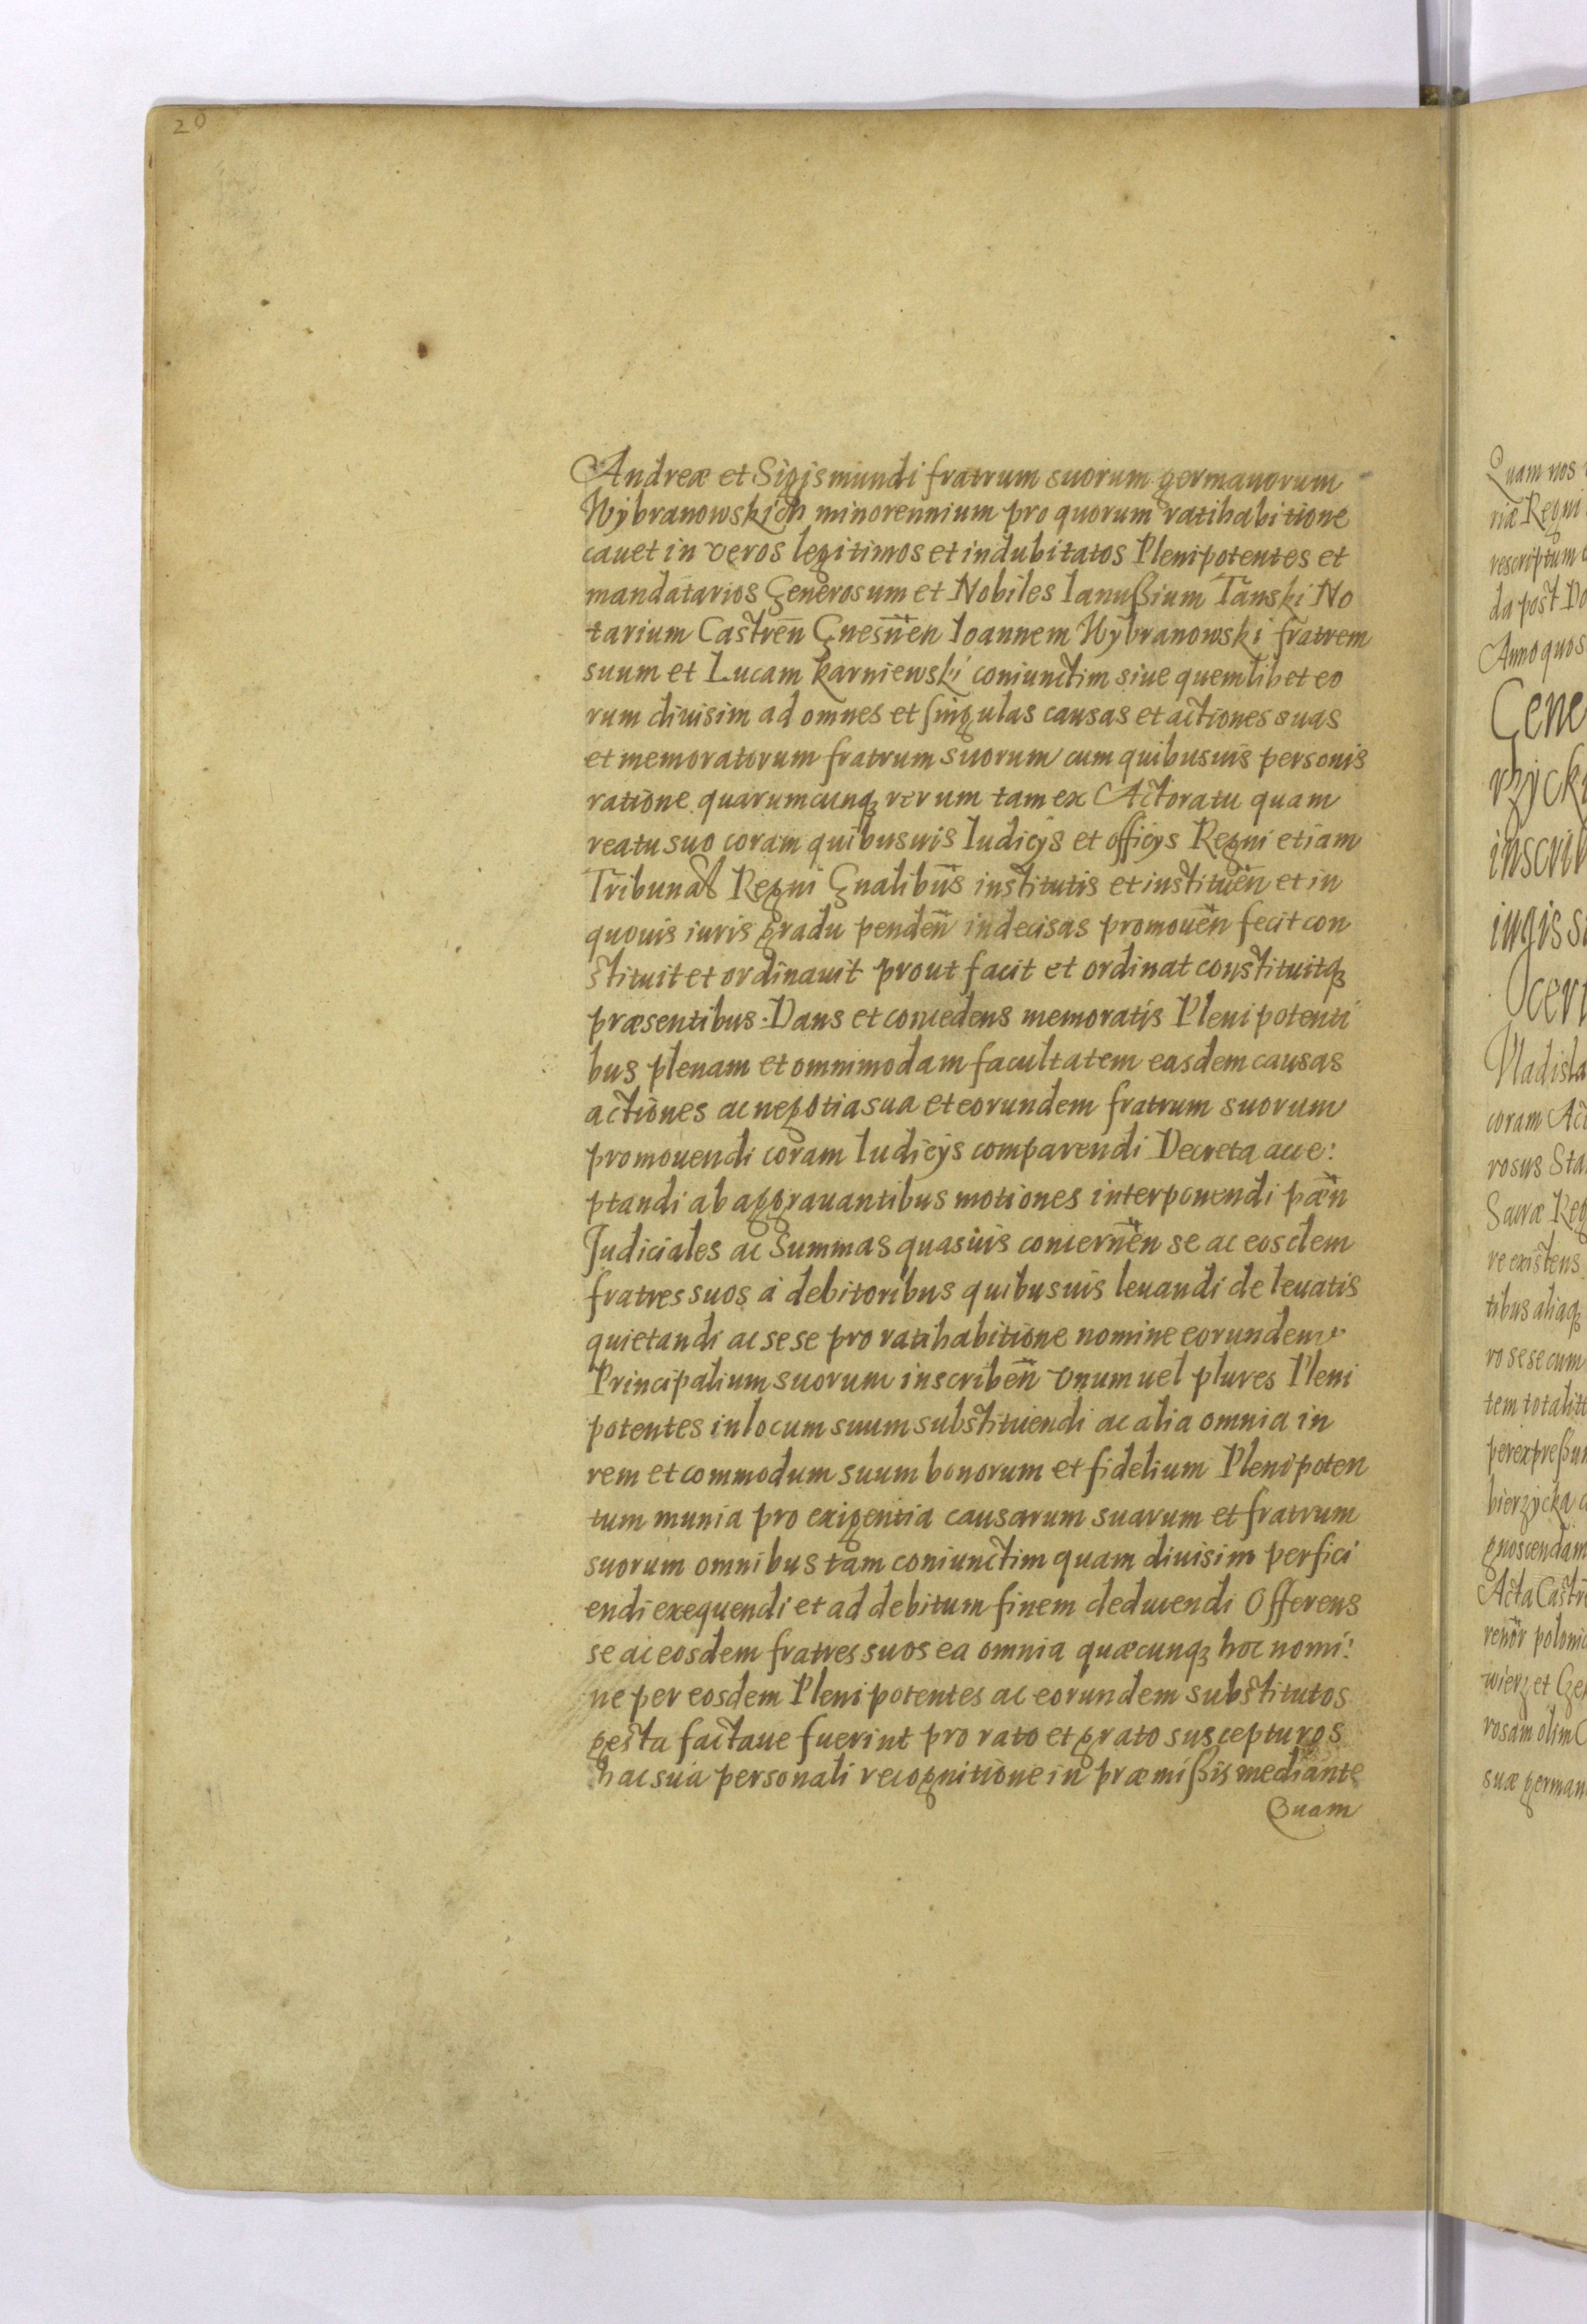 20
Andreæ et Sigismundi fratrum suorum germanorum
Wybranowskich minorennium pro quorum ratihabitione
cauet in veros legitimos et indubitatos Plenipotentes et
mandatarios Generosum et Nobiles Ianußium Tanski No
tarium Castren̄ Gnesn̄en Ioannem Wybranowski fratrem
suum et Lucam Karniewski coniunctim siue quemlibet eo
rum diuisim ad omnes et singulas causas et actiones suas
et memoratorum fratrum suorum cum quibusuis personis
ratione quarumcunqꝫ rerum tam ex Actoratu quam
reatu suo coram quibusuis Iudicÿs et officÿs Regni etiam
Tribunal Regni Gnalibus̄ institutis et instituen̄ et in
quouis iuris gradu penden̄ indecisas promouen̄ fecit con
stituit et ordinauit prout facit et ordinat constituitqꝫ
præsentibus. Dans et concedens memoratis Plenipotenti
bus plenam et omnimodam facultatem easdem causas
actiones ac negotia sua et eorundem fratrum suorum
promouendi coram Iudicÿs comparendi Decreta acce:
ptandi ab aggrauantibus motiones interponendi pæn̄
Judiciales ac Summas quasuis concernen̄ se ac eosdem
fratres suos à debitoribus quibusuis leuandi de leuatis
quietandi ac sese pro ratihabitione nomine eorundem
Principalium suorum inscriben̄ vnum uel plures Pleni
potentes in locum suum substituendi ac alia omnia in
rem et commodum suum bonorum et fidelium Plenipoten
tum munia pro exigentia causarum suarum et fratrum
suorum omnibus tam coniunctim quam diuisim perfici
endi exequendi et ad debitum finem deducendi Offerens
se ac eosdem fratres suos ea omnia quæcunqꝫ hoc nomi:
ne per eosdem Plenipotentes ac eorundem substitutos
gesta factaue fuerint pro rato et grato suscepturos
hac sua personali recognitione in præmißis mediante
Quam
Quam nos
riæ Regni
rescriptum
da post Do
Anno quos
Gene
rzyck
inscrib
iugis s
Ocer
Vladisla
coram Act
rosus Sta
Sacræ Reg
re existens
tibus aliaqꝫ
ro sese cum
tem totalit
per expreßum
bierzycka
gnoscendam
Acta Castr
renōr poloni
wierz et Cze
rosam olim
suæ german